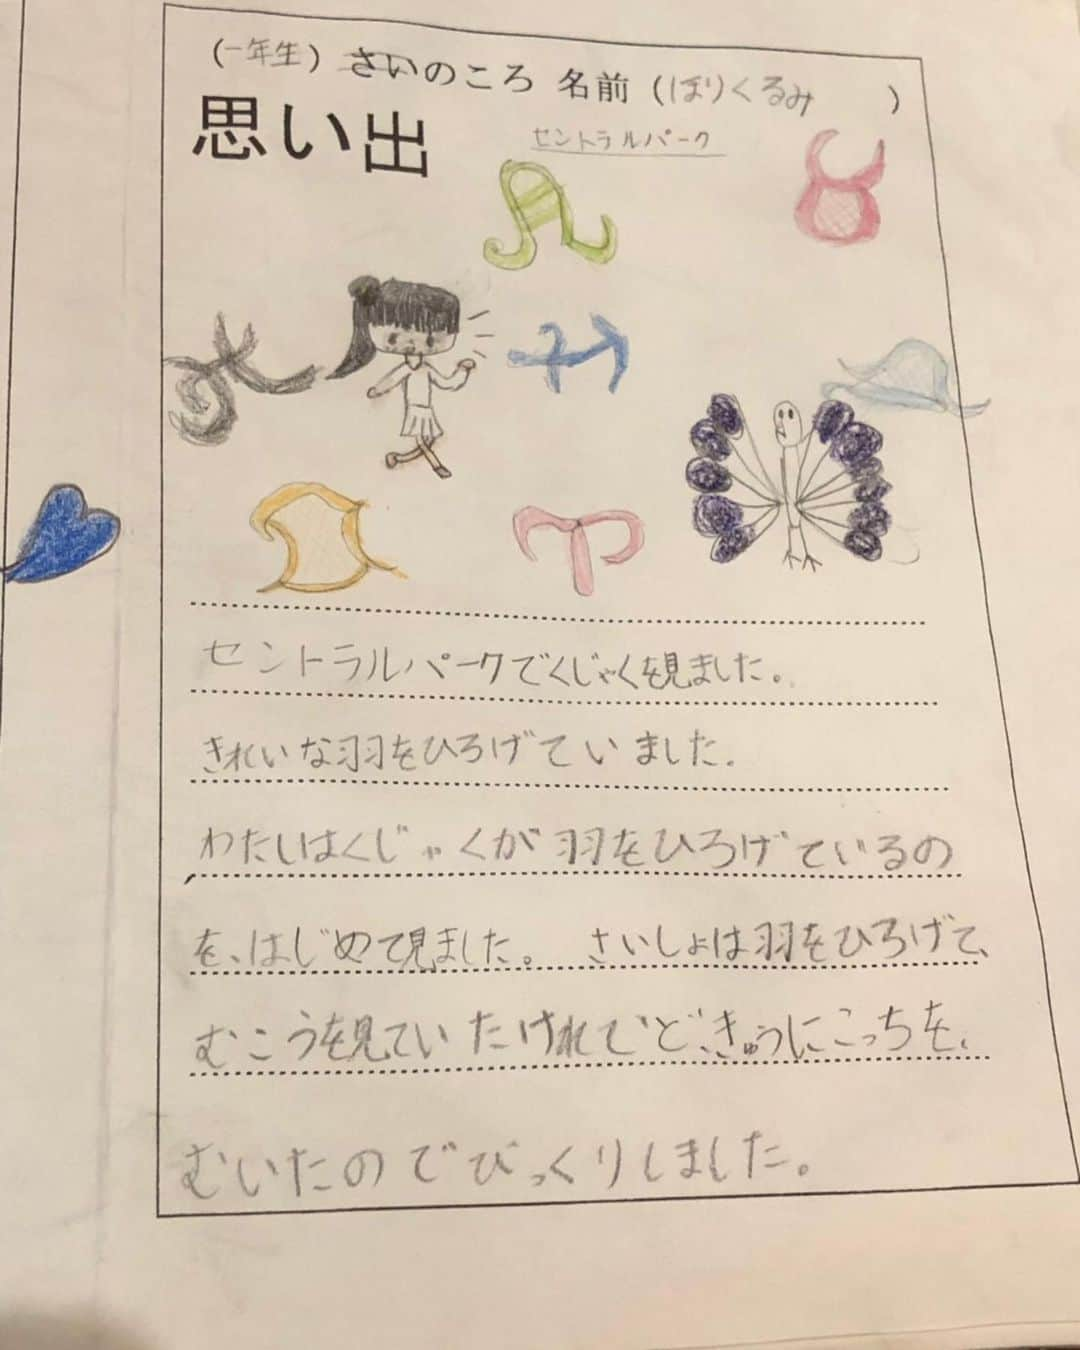 (一年生) さいのころ 名前 (ほりくるみ)
思い出
セントラルパーク
セントラルパークでくじゃくを見ました。
きれいな羽をひろげていました。
わたしはくじゃくが羽をひろげているの
を、はじめて見ました。 さいしょは羽をひろげて、
むこうを見ていたけれでどきゅうにこっちを、
むいたのでびっくりしました。